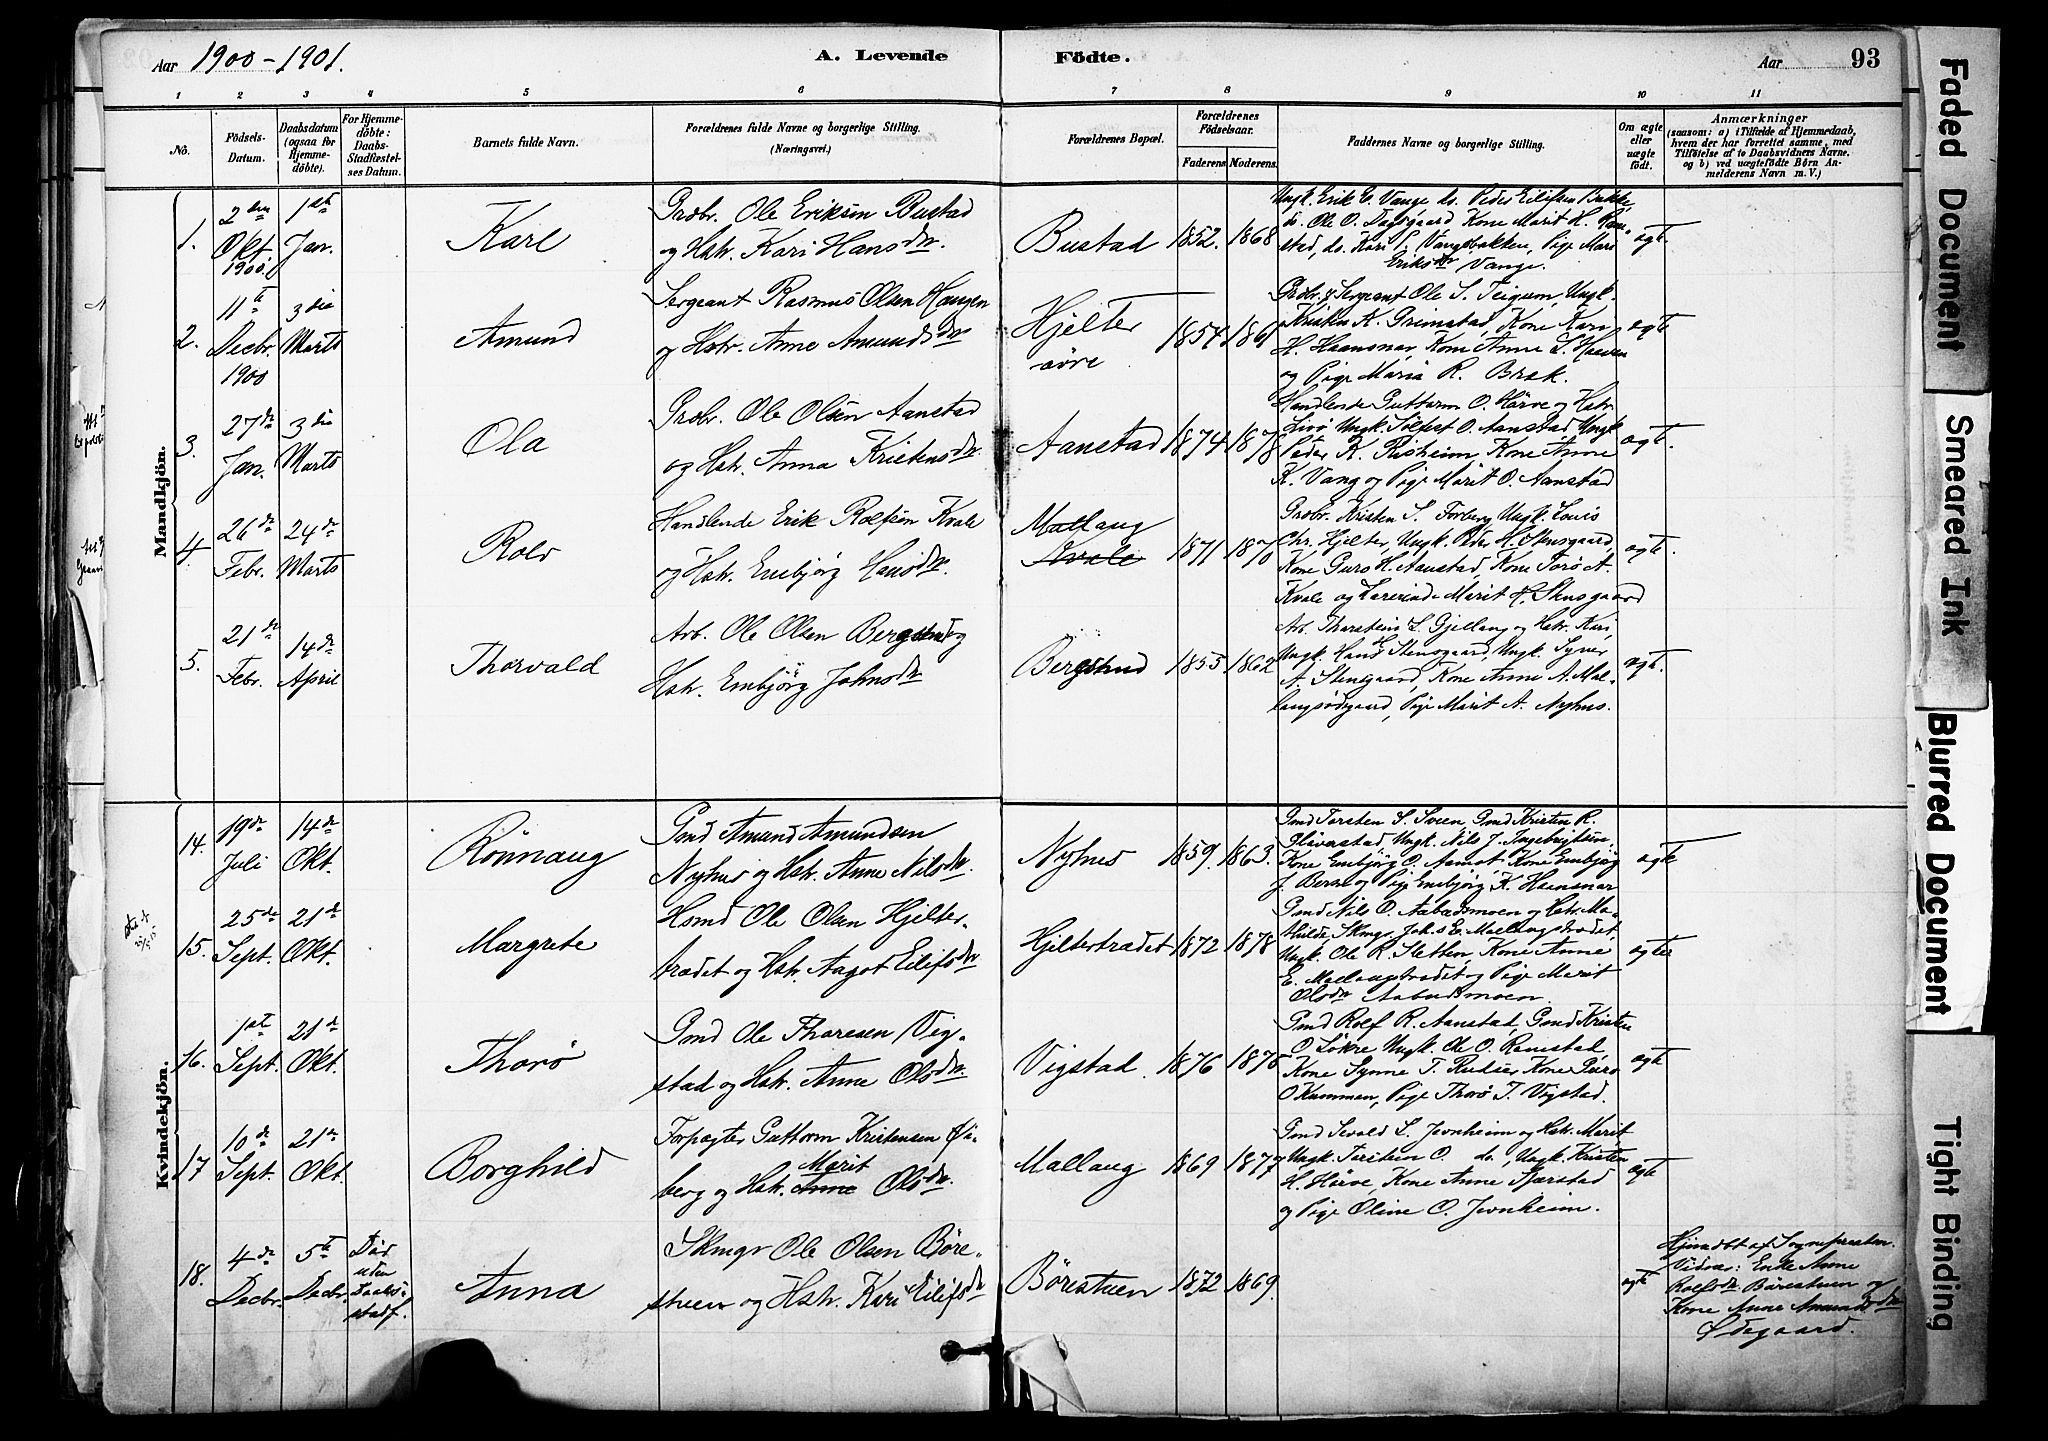 Aar 1900-1901.
A. Levende
Födte.
Aar
93
1 2 3 4 5 6 7 8 9 10 11
No.
Födsels-
Datum.
Daabsdatum
(ogsaa for
Hjemme-
döbte).
For Hjemme-
döbte:
Daabs-
Stadfæstel-
ses Datum.
Barnets fulde Navn.
Forældrenes fulde Navne og borgerlige Stilling.
(Næringsvei.)
Forældrenes Bopæl.
Forældrenes
Födselsaar.
Faderens. Moderens.
Faddernes Navne og borgerlige Stilling.
Om ægte
eller
uægte
födt.
Anmærkninger
(saasom: a) i Tilfælde af Hjemmedaab,
hvem der har forrettet samme, med
Tilföielse af to Daabsvidners Navne.
og b) ved uægtefödte Börn An-
melderens Navn m. V.)
Mandkjön.
1.
2den
Okt.
1900.
1ste
Jan.
Karl
Grdbr. Ole Eriksen Bustad
og Hstr. Kari Hansdtr.
Bustad
1852. 1868
Ungk. Erik E. Vange do. Peder Eilifsen Bakke,
do. Ole O. Dagsgaard, Kone Marit H.
stad, do. Kari P. Vangsbakken, Pige Mari
Eriksdtr Vange.
ægte.
2.
11te
Decbr.
1900
3die
Marts
Amund
Sergeant Rasmus Olsen Haugen
og Hstr. Anne Amundsdtr.
Hjelter
øvre
1854 1861
Grdbr. & Sergeant Ole S. Teigum, Ungk.
Kristen K. Grimstad, Kone Kari
H. Haansnar, Kone Anne S.
og Pige Maria R. Brek.
ægte
3.
27de
Jan.
3die
Marts
Ola
Grdbr. Ole Olsen Aanstad
og Hstr. Anna Kristensdtr.
Aanstad
1874 1878
Handlende Guttorm O. Hörve og Hstr.
Livö Ungk. Sölfest O. Aanstad Ungk
Peder K. Risheim, Kone Anne
K. Vang og Pige Marit O. Aanstad
ægte.
4
26de
Febr.
24de
Marts
Rolv
Handlende Erik Rolfsen Kvale
og Hstr. Embjörg Hansdtr.
Mallaug
Kvale
1871 1870
Grdbr. Kristen S. Forberg Ungk. Louis
Chr. Hjelter, Ungk. Peder H. Stensgaard,
Kone Guro H. Aanstad, Kone Torö A.
Kvale og Lærerinde Marit H. Stensgaard
ægte
5.
21de
Febr.
14de
April
Thorvald
Arb. Ole Olsen Bergsund og
Hstr. Embjörg Johnsdtr
Bergsund
1855 1862
Arb. Thorstein S. Gjellaug og Hstr. Kari,
Ungk. Hans H Stensgaard, Ungk. Syver
A. Stensgaard, Kone Anne A. Mal-
laugsödegaard, Pige Marit A. Nyhus.
ægt.
Kvindekjön.
14.
19de
Juli
14de
Okt.
Rönnaug
Gmd Amund Amundsen
Nyhus og Hstr. Anne Nilsdtr.
Nyhus
1859. 1863.
Gmd Torsten S. Sveen Gmd Kristen R.
Glavarstad, Ungk. Nils J. Ingebrigtsen.
Kone Embjörg O. Aamot, Kone Embjörg
J. Berse og Pige Embjörg K. Haansnar
ægte
15.
25de
Sept.
21de
Okt.
Margrete
Hsmd Ole Olsen Hjelter-
trædet og Hstr. Aagot Eilifsdtr
Hjeltertrædet
1872 1878
Gmd Nils O. Aabudsmoen og Hstr. Ma-
thilde, Skmgr. Johs E. Mallaugstrædet,
Ungk. Ole R. Sletten, Kone Anne
E. Mallaugtrædet og Pige Marit
Olsdtr Aabudsmoen.
ægte
16.
1ste
Sept.
21de
Okt.
Thorö
Gmd Ole Thoresen Vig-
stad og Hstr. Anne Olsdtr.
Vigstad
1876 1875
Gmd Rolf R. Aanstad, Gmd Kristen
O Lökre Ungk. Ole O. Ramstad,
Kone Synne T. Rudsar Kone Guro
O Kummen, Pige Thorö T. Vigstad.
ægte
17
10de
Sept.
21de
Okt.
Borghild
Forpagter Guttorm Kristensen Öi-
berg og Hstr. Anne Marit Olsdtr.
Mallaug
1869 1877
Gmd Sevald S. Jevnheim og Hstr. Marit
Ungk. Torstein O. do., Ungk. Kristen
H. Hörve, Kone Anne Tjærstad
og Pige Oline O. Jevnheim.
ægte
18.
4de
Decbr.
5te
Decbr.
Död
uden
Daabs-
stadf.
Anna
Skmgr Ole Olsen Böre-
stuen og Hstr. Kari Eilifsdtr
Börestuen
1872 1869.
ægte
Hjemdöbt af Sognepresten.
Vidner: Enke Anne
Rolfsdtr Börestuen og
Kone Anne Amundsdtr
Ödegaard.
Faded Document
Smeared Ink
Blurred Document
Tight Binding